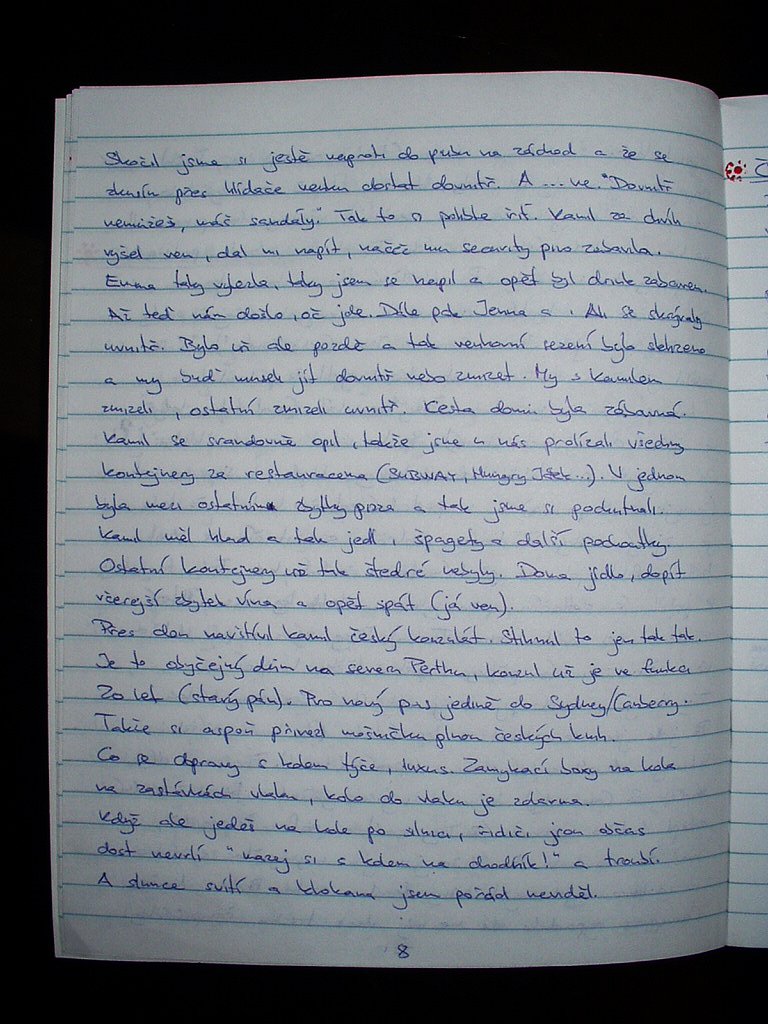 Skočil jsme si ještě naproti do pubu na záchod a že se
zkusím přes hlídače venku dostat dovnitř. A ... ne. "Dovnitř
nemůžeš, máš sandály." Tak to si polibte řiť. Kamil za chvíli
vyšel ven, dal mi napít, načež mu security pivo zabavila.
Emma taky vylezla, taky jsem se napil a opět byl drink zabaven.
Až teď nám došlo, oč jde. Dále pak Jenna a . Ali se
uvnitř. Bylo už ale pozdě a tak venkovní sezení bylo
a my buď museli jít dovnitř nebo zmizet. My s Kamilem
zmizeli, ostatní zmizeli uvnitř. Cesta domů byla zábavná.
Kamil se srandovně opil, takže jsme u nás prolízali všechny
kontejnery za restauracema (SUBWAY, Hungry Jack...). V jednom
byla mezi ostatníma zbytky pizza a tak jsme si pochutnali.
Kamil měl hlad a tak jedl i špagety a další pochoutky.
Ostatní kontejnery už tak štědré nebyly. Doma jídlo, dopít
včerejší zbytek vína a opět spát (já ven).
Přes den navštívil Kamil český konzulát. Stihnul to jen tak tak.
Je to obyčejný dům na severu Perthu, konzul už je ve funkci
20 let (starý pán). Pro nový pas jedině do Sydney/Canberry.
Takže si aspoň přivezl mošničku plnou českých knih.
Co se dopravy s kolem týče, luxus. Zamykací boxy na kola
na zastávkách vlaku, kolo do vlaku je zdarma.
Když ale jedeš na kole po silnici, řidiči jsou občas
dost nevrlí "nazej si s kolem na chodník!" a troubí.
A slunce svítí a klokana jsem pořád neviděl.
8